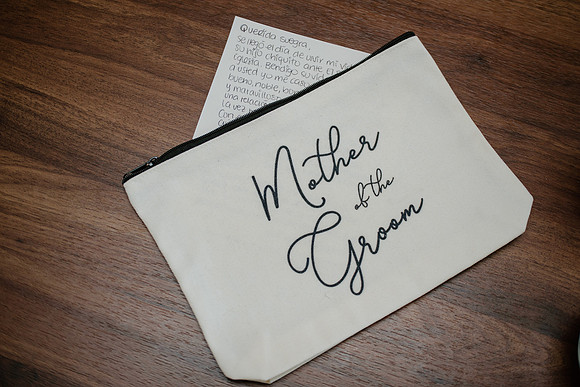 Querida suegra,
se llegó el día de unir mi vid
su hijo chiquito ante el
Iglesia. Bendigo su vid
a usted yo me casé
bueno, noble, bon
y maravilloso
una relación
la vez m
Con
Mother
of the
Groom